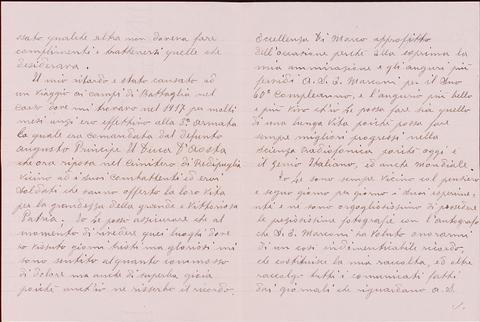 ssato qualche altra non doveva fare
complimenti e trattenersi quelle che
desiderava.
Il mio ritardo e stato causato ad
un Viaggio ai campi di Battaglia nel
Carso dove mi trovavo nel 1917 per molti
mesi ungi ero effettivo alla 3ª armata
la quale era comandata dal defunto
augusto Principe il Duca D'Aosta
che ora riposa nel Cimitero di Redipuglia
Vicino ad i suoi Combattenti ed eroi
soldati che hanno offerto la loro Vita
per la grandezza della grande e Vittoriosa
Patria. Io Le posso assicurare che al
momento di rivedere quei luoghi dove
ho vissuto giorni tristi ma gloriosi mi
sono sentito alquanto commosso
di dolore ma anche di superba gioia
poichè anch'io ne risserbo il ricordo.
Eccellenza Di Marco approfitto
dell'occasione perchè alla esprima la
mia ammirazione e gli auguri più
fervidi a S. E. Marconi per il Suo
60° Compleanno, e l'augurio più bello
e più vivo ch'io Le possa fare sia quello
di una lunga Vita poichè possa far
sempre migliori progressi nella
scienza radiofonica poichè oggi è
il genio Italiano, ed anche mondiale.
Io Le sono sempre Vicino col pensiero
e seguo giorno per giorno i suoi esperime_
nti e ne sono orgogliosissimo di possedere
le preziosissime fotografie con l'autografo
che S. E. Marconi ha Voluto onorarmi
di un così indimenticabile ricordo,
che costituisce la mia raccolta, ed oltre
raccolgo tutti i comunicati fatti
dai giornali che riguardano a S.